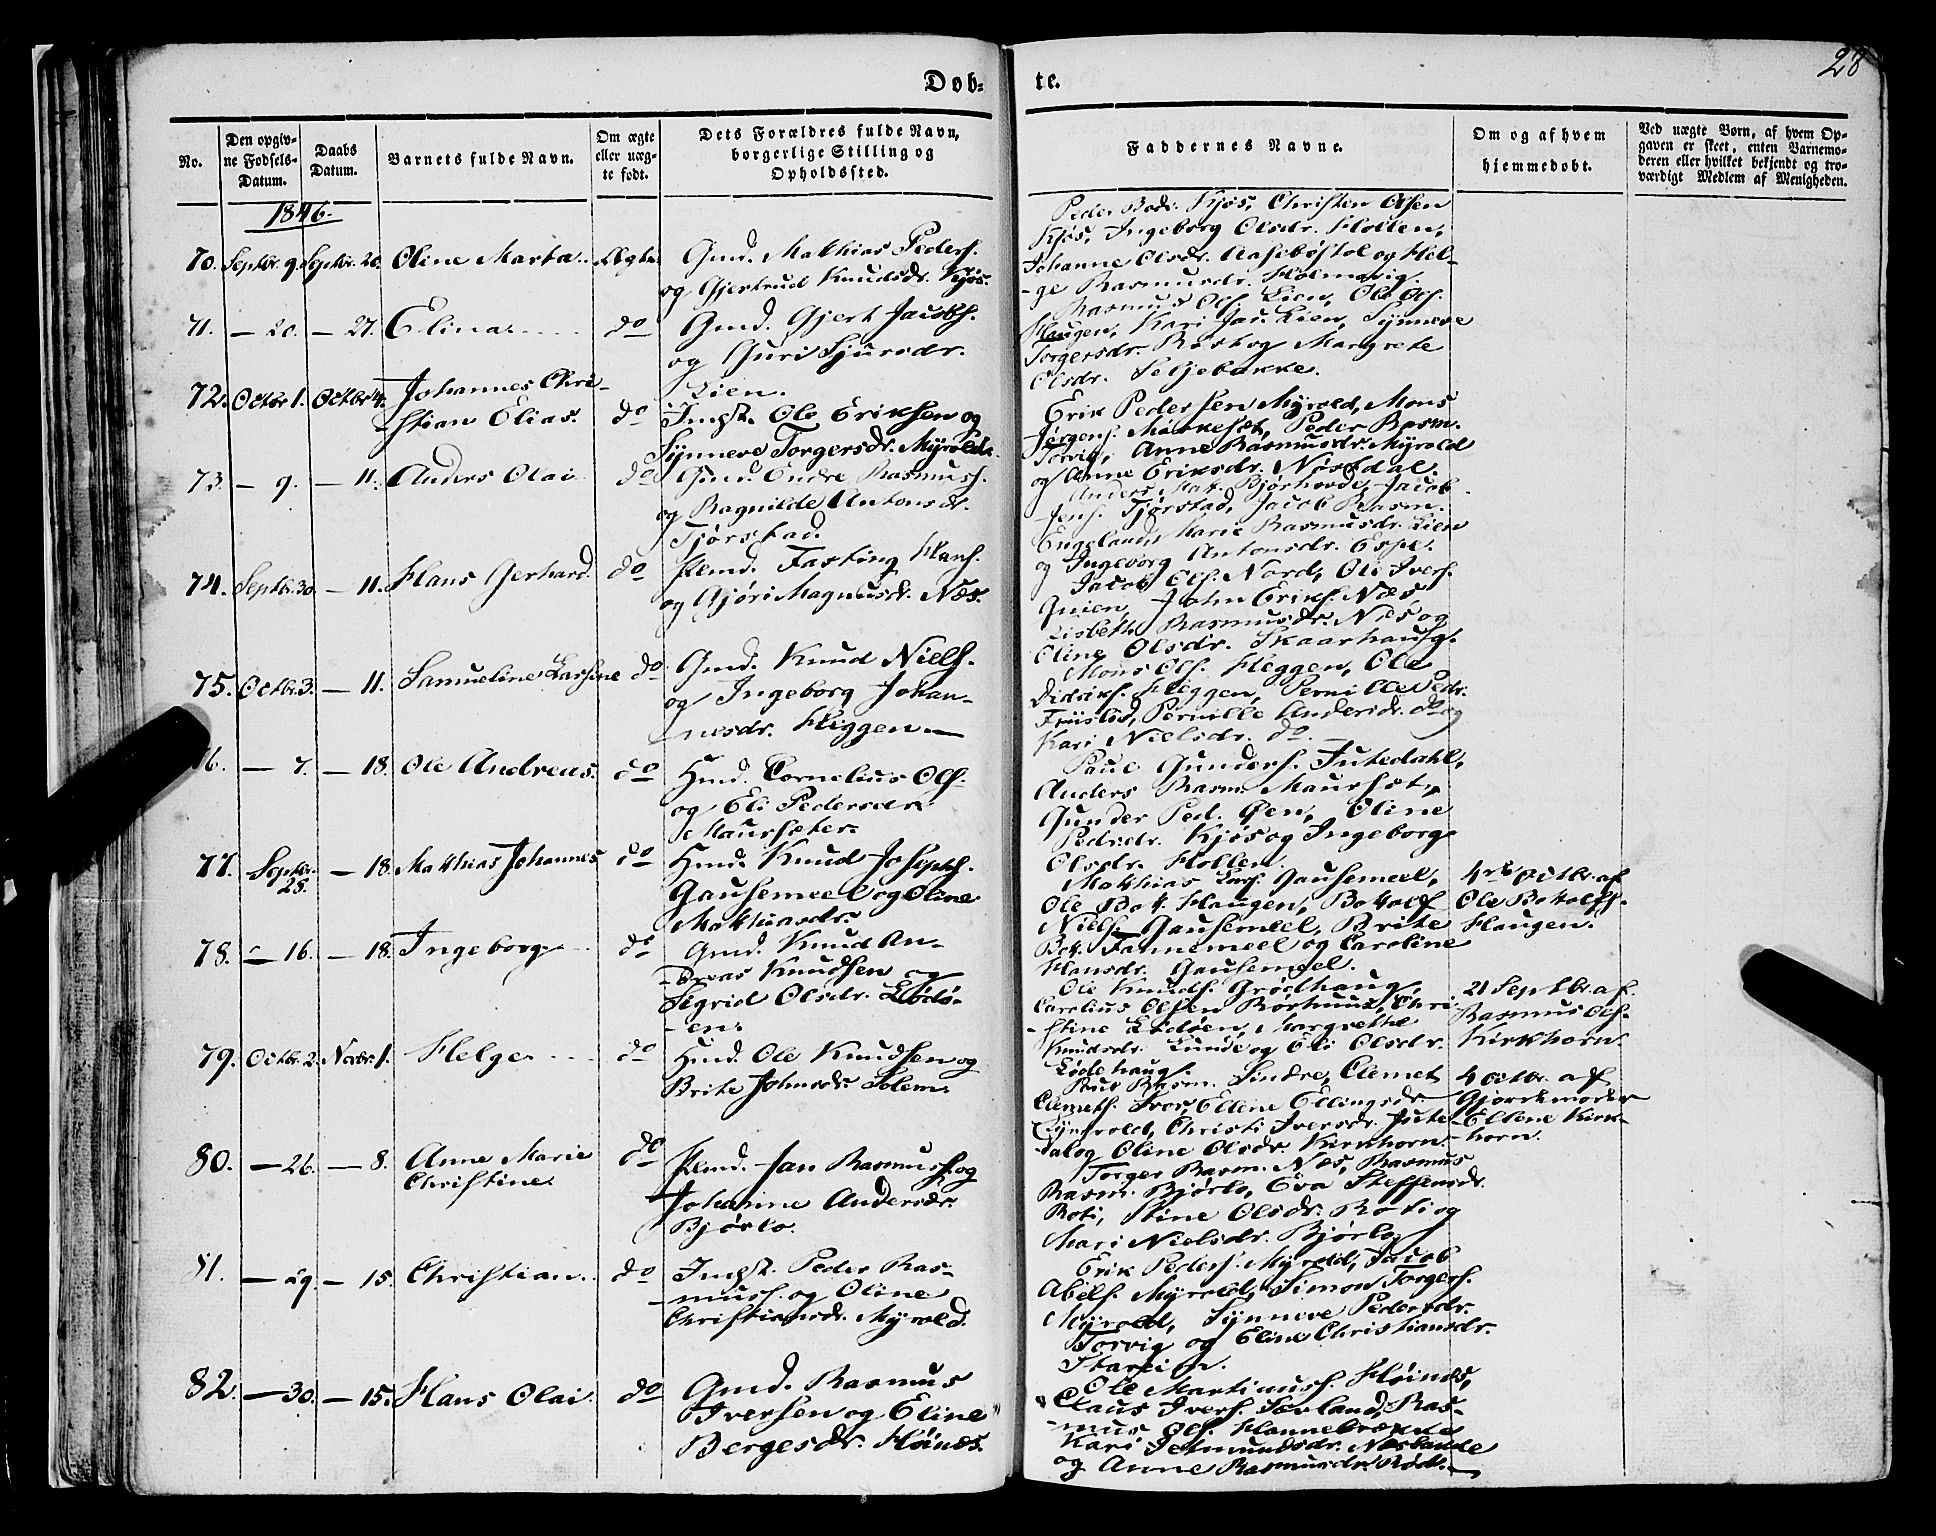 28
Døb-
te.
No.
Den opgiv-
ne Fødsels-
Datum.
Daabs
Datum.
Barnets fulde Navn.
Om ægte
eller uæg-
te født.
Dets Forældres fulde Navn,
borgerlige Stilling og
Opholdssted.
Faddernes Navne.
Om og af hvem
hjemmedøbt.
Ved uægte Børn, af hvem Op-
gaven er skeet, enten Barnemo-
deren eller hvilket bekjendt og tro-
værdigt Medlem af Menigheden.
1846.
70. Septbr. 9. Septbr. 20. Oline Marta Ægte
Gmd. Mathias Peders.
og Gjertrud Knudsdr. Kjøs.
Peder Kjøs, Christen Olsen
Kjøs, Ingeborg Olsdr. Hollen,
Johanne Olsdr. Aasebøstøl og Hel-
ge Rasmusdr. Holmøvig.
71. — 20. — 27. Elina do
Gmd. Gjert Jacobs.
og Guri Sjursdr.
Lien.
Rasmus Ols. Lien, Ole Ols.
Haugen, Kari Jac. Lien, Synneve
Torgersdr. og Margrete
Olsdr. Seljebakke.
72. Octbr 1. Octbr 4. Johannes Chri-
stian Elias. do
Ole Eriksen og
Synneve Torgersdr. Myrold.
Erik Pedersen Myrold, Mons
Jørgens. Peder Rasm.
Torvig, Anne Rasmusdr. Myrold
og Anne Eriksdr. Nøstdal.
73. — 9. — 11. Anders Olai do
Gmd. Endre Rasmuss.
og Ragnilde Antonsdr.
Tjørstad.
Anders Bjørhovde, Jacob
Jens. Tjørstad, Jacob Rasm.
Engeland, Marie Rasmusdr. Lien
og Ingeborg Antonsdr. Espe.
74. Septbr. 30. — 11. Hans Gerhard. do
Fasting Hans.
og Gjøri Magnusdr. Næs.
Jacob Ols. Nord, Ole Ivers.
John Eriks. Næs
Lisbeth Rasmusdr. Næs og
Oline Olsdr. Skaarhaug.
75. Octbr. 3. — 11. Samueline Larsine do
Gmd. Knud Niels.
og Ingeborg Johan-
nesdr. Heggen —
Mons Ols. Heggen, Ole
Didriks. Heggen, Pernille Pedr.
Pernille Andersdr. do og
Kari Nielsdr. do. —
6. — 7. — 18. Ole Andreas. do
Hmd. Cornelius Ols.
og Eli Pedersdr.
Maursæter.
Paul Gunders. Jutedahl,
Anders Rasm. Maurset,
Gunder Ped. Øen, Oline
Pedrdr. Kjøs og Ingeborg
Olsdr. Hollen.
77. Septbr. 25. — 18. Mathias Johannes do
Hmd. Knud Josephs.
Gausemeel og Oline
Mathiasdr.
Mathias Lars. Gausemeel,
Ole Bot. Haugen, Botolf
Niels. Gausemeel, Brite
Bot. Tannemeel og Caroline
Hansdr. Gausemeel.
4de Octbr. af
Ole Botolfs.
Haugen.
78. — 16. — 18. Ingeborg do
Gmd. Knud An-
dreas Knudsen og
Sigrid Olsdr. Lødø-
en.
Ole Knuds. Grødhaug,
Carolius Olsen Rørhuus, Chri-
stine Lødøen, Margrethe
Knudsdr. Lunde og Eli Olsdr.
Lødehaug.
21 Septbr. af
Rasmus Ols.
Kirkhorn
79. Octbr. 2. Novbr. 1. Helge do
Hmd. Ole Knudsen og
Brite Johnsdr. Solem.
Rasm. Sindre, Clemet
Clemets. Ellene Ellingsdr.
Christi Iversdr. Jute-
dal og Oline Olsdr. Kirkhorn.
4 Octbr. af
Gjordemoder
Ellene Kirk-
horn.
80. — 26. — 8. Anne Marie
Christine. do
Jan Rasmuss. og
Johanne Andersdr.
Bjørlo.
Torger Rasm. Næs, Rasmus
Rasm. Bjørlo, Eva Steffensdr.
Roti, Stine Olsdr. Roti og
Mari Nielsdr. Bjørlo
81. — 29. — 15. Christian. do
Peder Ras-
muss. og Oline
Christiansdr. Myrold.
Erik Peders. Myrold, Jacob
Abels. Myrold, Simon Torgers.
Myrold, Synneve Pedersdr.
Torvig og Eline Christiansdr.
82. — 30. — 15. Hans Olai. do
Gmd. Rasmus
Iversen og Eline
Bergesdr. Høinæs.
Ole Martinuss. Høinæs,
Claus Ivers. Sørland, Ras-
mus Ols. Hannebrække
Kari
og Anne Rasmusdr.